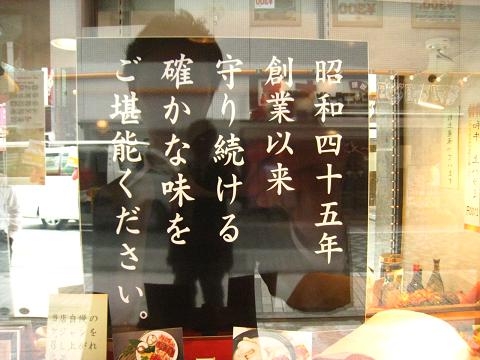 昭和四十五年
創業以来
守り続ける
確かな味を
ご堪能ください。